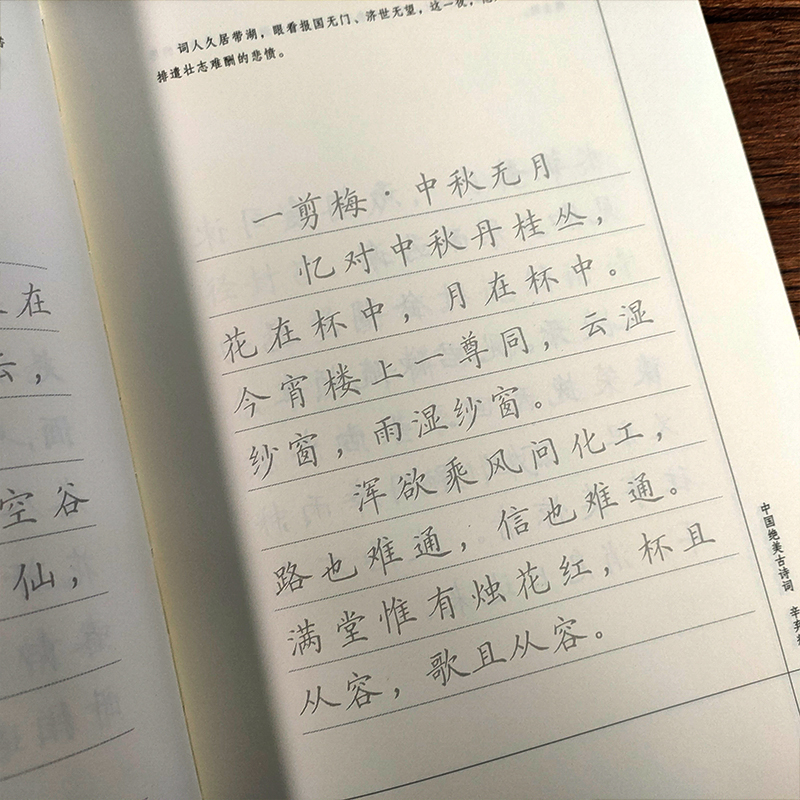 词人久居带湖，眼看报国无门、济世无望，这一夜，
排遣壮志难酬的悲愤。
一剪梅·中秋无月
忆对中秋丹桂丛，
花在杯中，月在杯中。
今宵楼上一尊同，云湿
纱窗，雨湿纱窗。
浑欲乘风问化工，
路也难通，信也难通。
满堂惟有烛花红，杯且
从容，歌且从容。
在
云，
空谷
仙，
中国绝美古诗词 辛弃